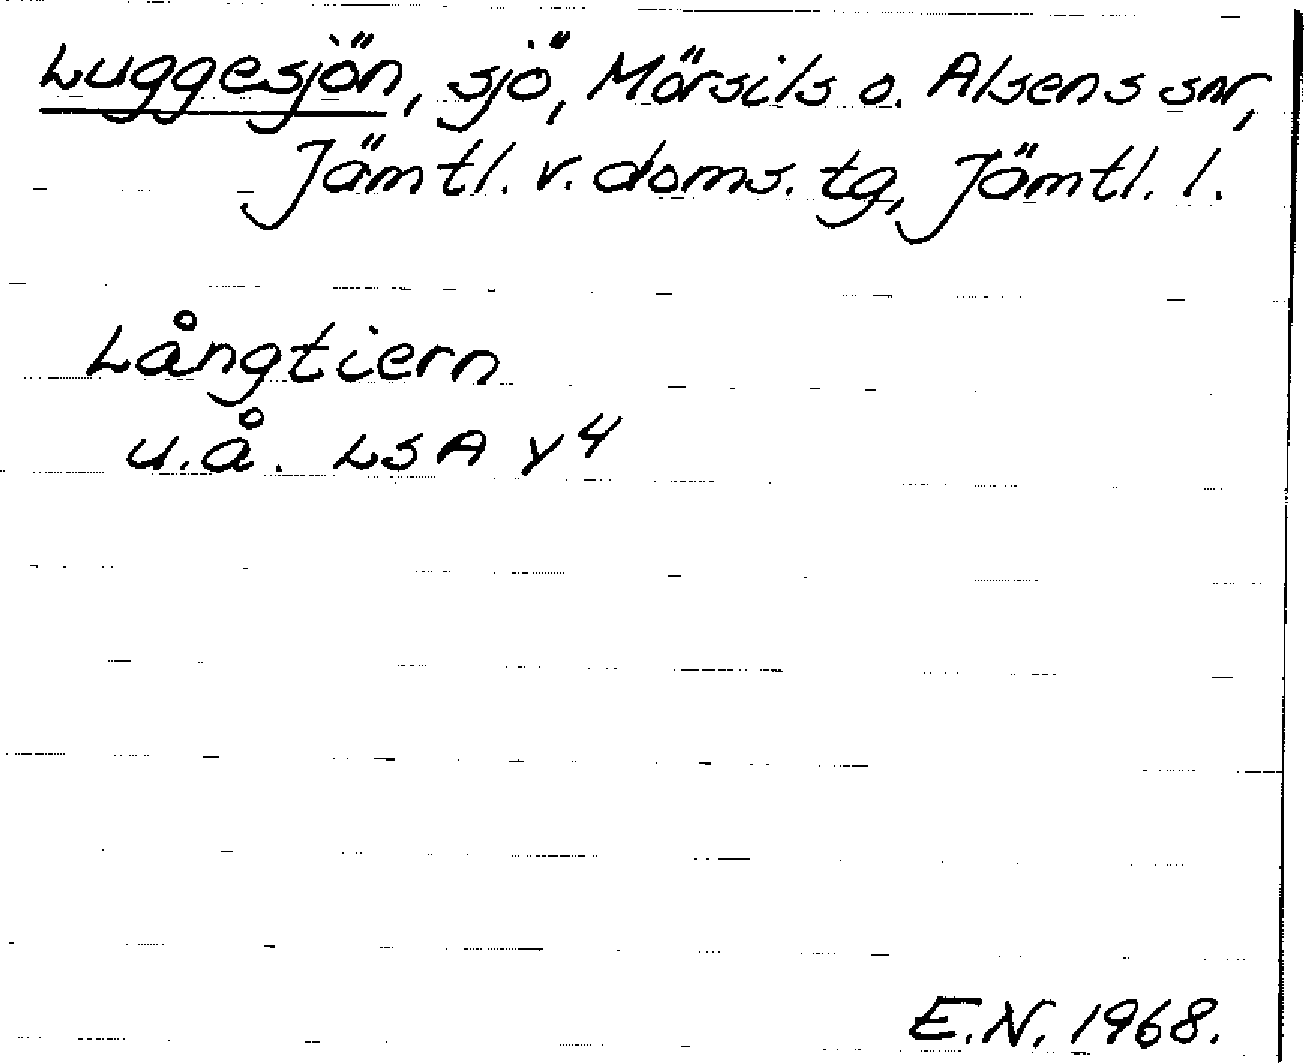 Luggesjön, sjö, Mörsils o. Alsens snr,
Jämtl. v. doms. tg, Jämtl. l.
Långtiern
u.å. LSA Y4
E.N. 1968.